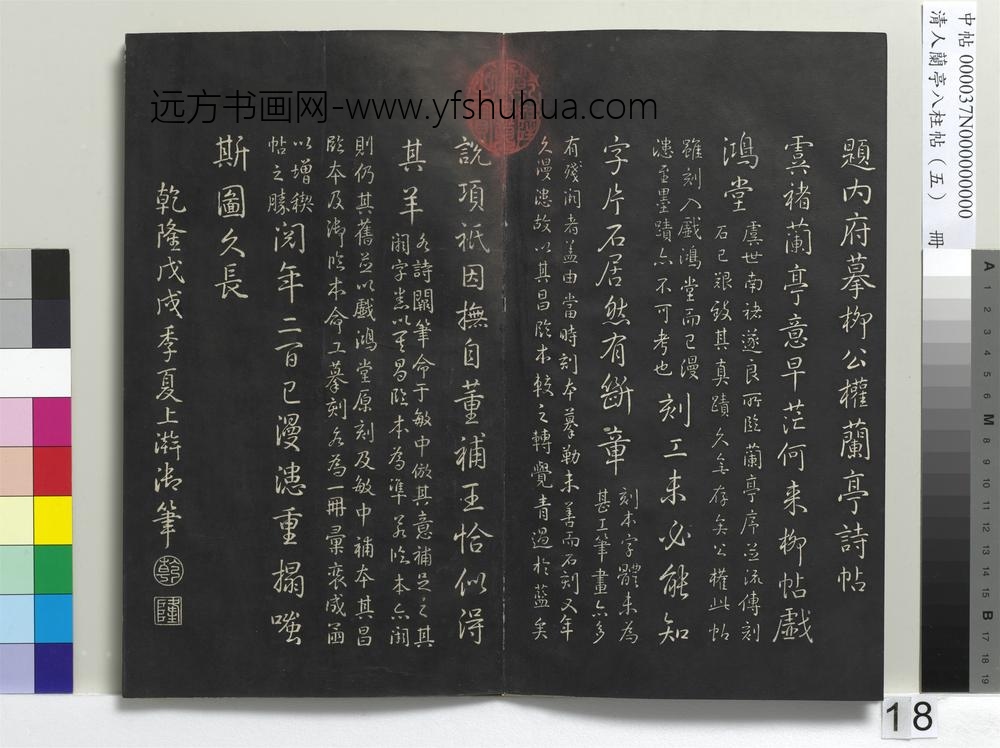 題內府摹柳公權蘭亭詩帖
虞褚蘭亭意早茫何来柳帖戲
鴻堂
虞世南褚遂良所臨蘭亭序並流傳刻
石已艱致其真蹟久無存矣公權此帖
雖刻入戲鴻堂而已漫
漶至墨蹟亦不可考也
刻工未必能知
字片石居然有斷章
刻本字體未為
甚工筆畫亦多
有殘闕者盖由當時刻本摹勒未善而石刻又年
久漫漶故以其昌臨本較之轉覺青過於藍矣
說項祇因撫自董補王恰似得
其羊
各詩闕筆命于敏中倣其意補足之其
闕字悉以其昌臨本為準若臨本亦闕
則仍其舊並以戲鴻堂原刻及敏中補本其昌
臨本及御臨本命工摹刻各為一冊彙裘咸函
以增稧
帖之勝
閱年二百已漫漶重搨嗤
斯圖久長
乾隆戊戌季夏上澣御筆
乾
隆
远方书画网-www.yfshuhua.com
中帖 000037N000000000
清人蘭亭八柱帖(五) 冊
A 1 2 3 4 5 6 M 8 9 10 11 12 13 14 15 B 17 18 19
18